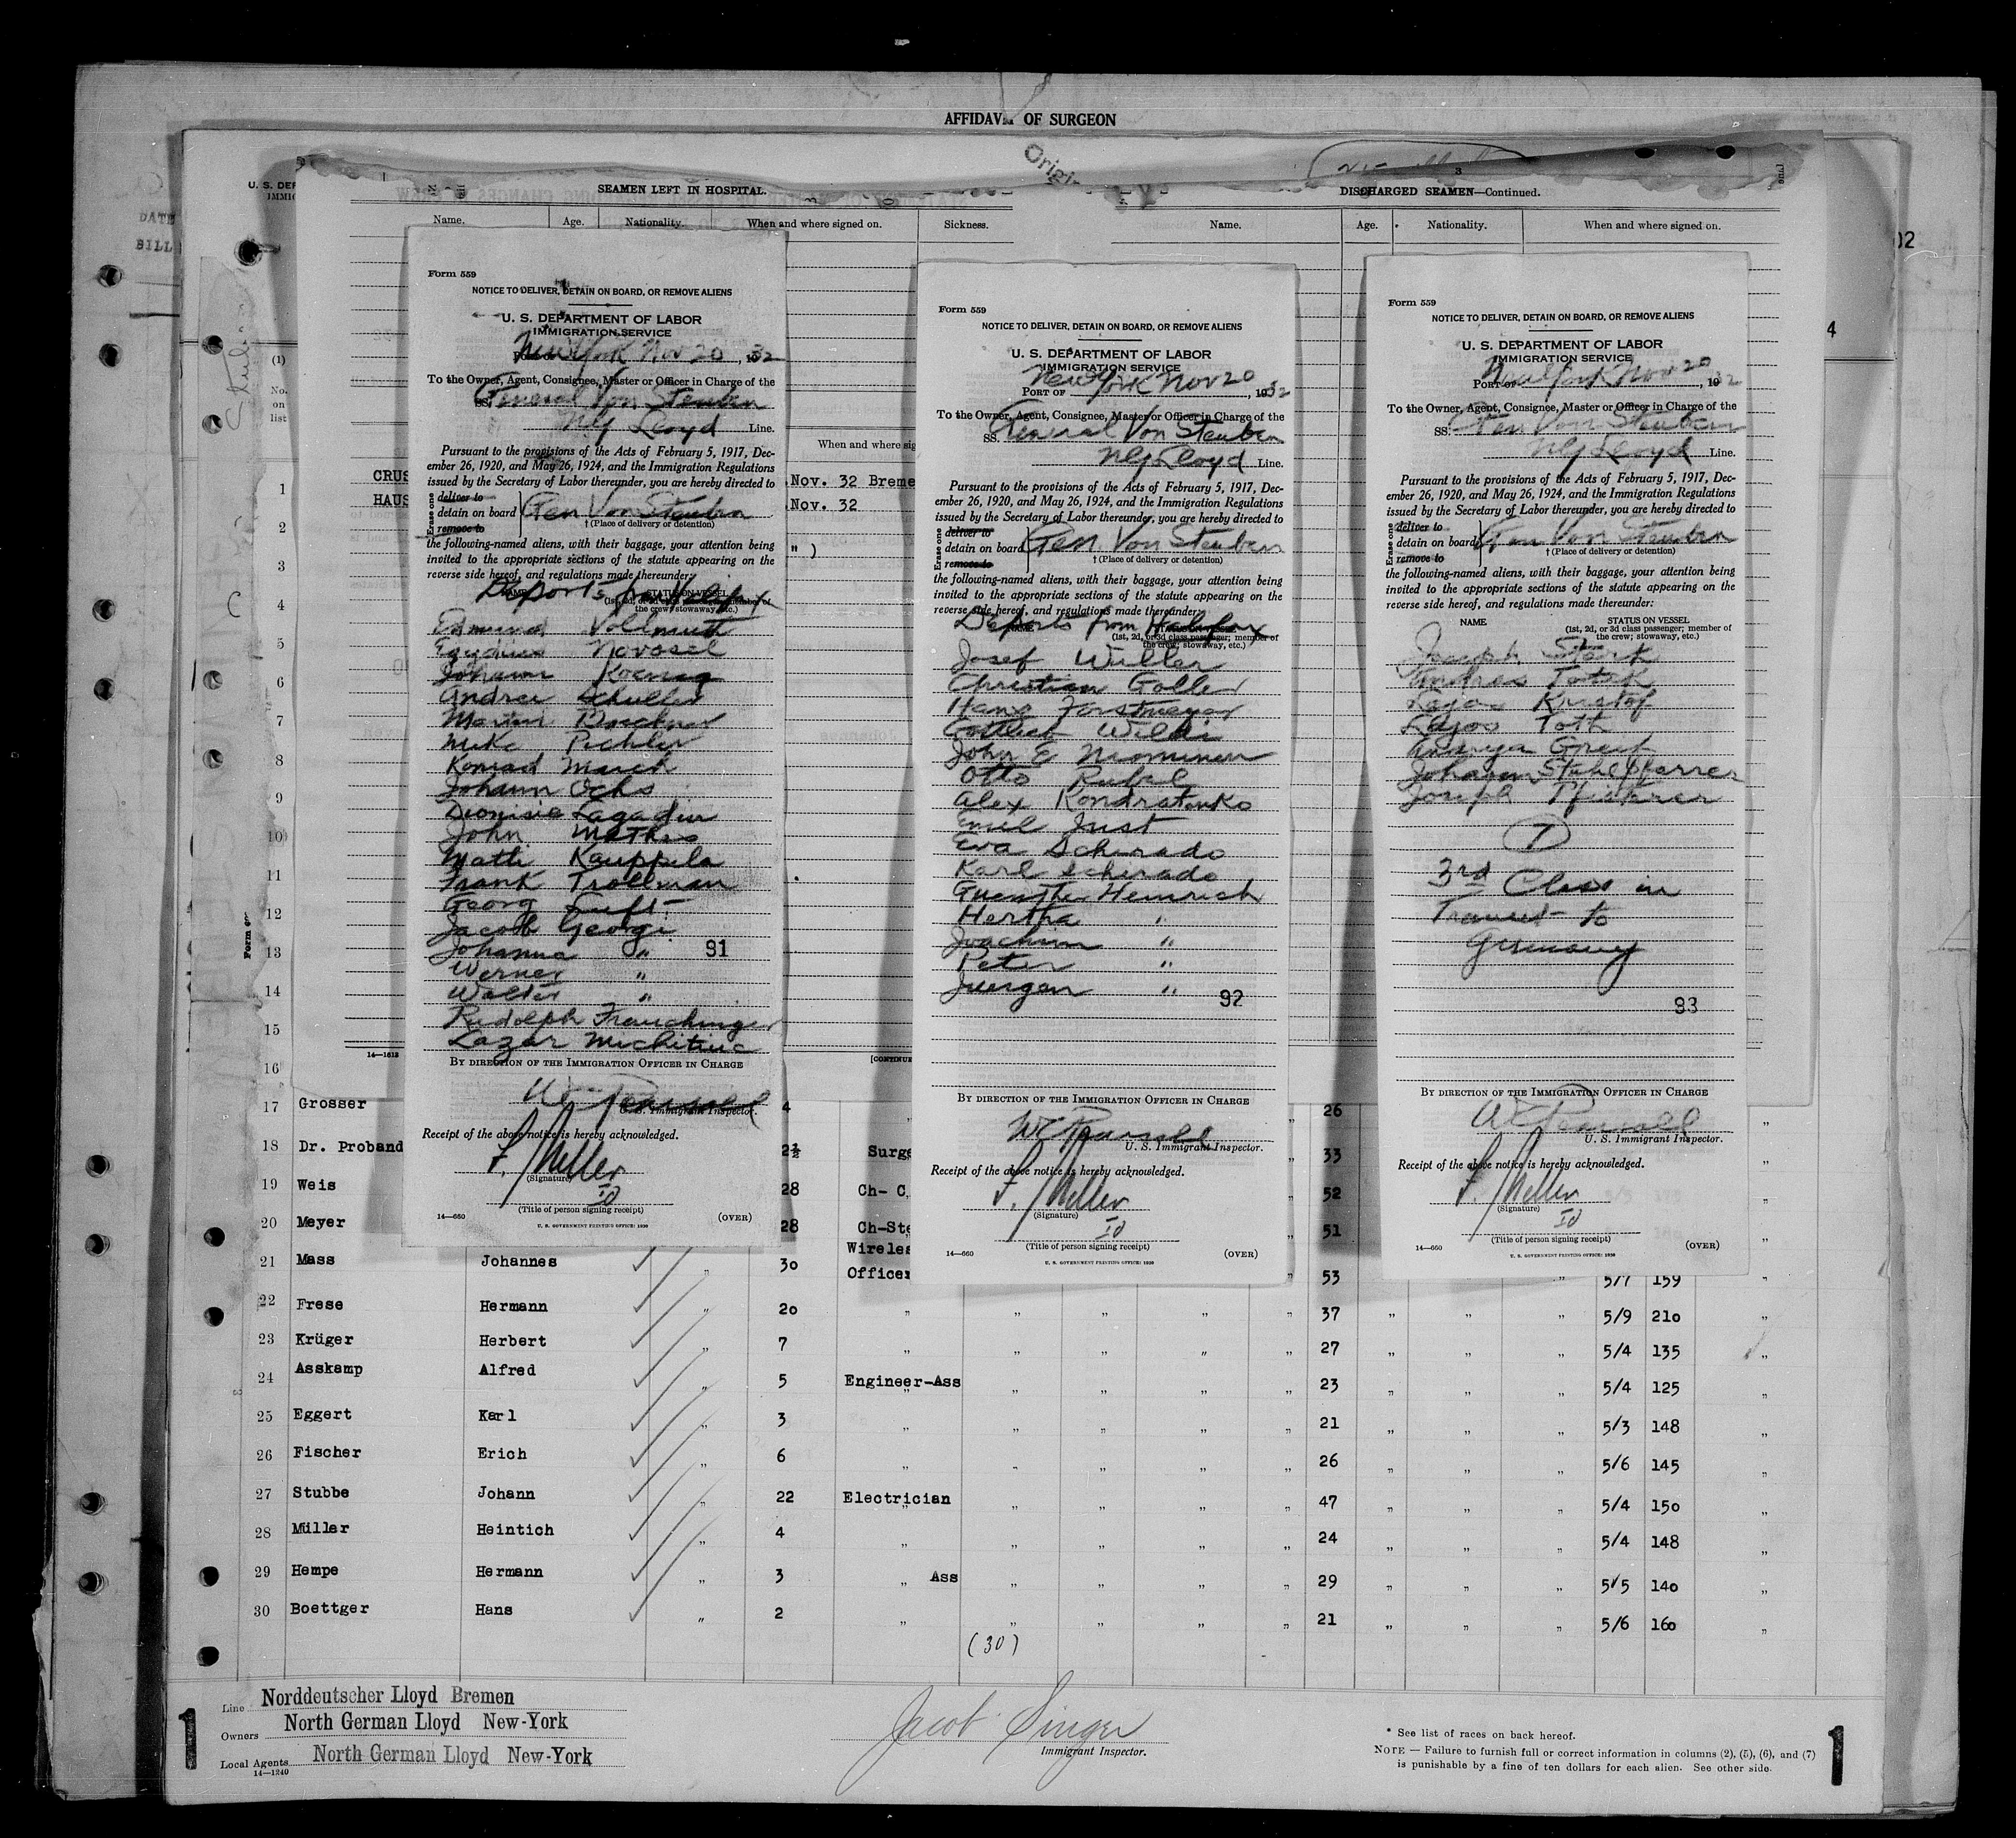 AFFIDAV OF SURGEON
Origi
U. S. DEP
IMMIG
SEAMEN LEFT IN HOSPITAL.
Name. Age. Nationality. When and where signed on. Sickness.
3
DISCHARGED SEAMEN—Continued.
Name. Age. Nationality. When and where signed on.
DATE
BILL
02
4
(1)
No.
on
list
When and where sig
CRUS
HAUS
Nov. 32 Breme
Nov. 32
" )
1
2
3
4
5
6
7
8
9
10
11
12
13
14
15
16
14—1613
[CONTINUE
Form 559
NOTICE TO DELIVER, DETAIN ON BOARD, OR REMOVE ALIENS
U. S. DEPARTMENT OF LABOR
IMMIGRATION SERVICE
New York Nov 20, 1932
To the Owner, Agent, Consignee, Master or Officer in Charge of the
SS. General Von Steuben
NG Lloyd Line.
Pursuant to the provisions of the Acts of February 5, 1917, Dec-
ember 26, 1920, and May 26, 1924, and the Immigration Regulations
issued by the Secretary of Labor thereunder, you are hereby directed to
Erase one
deliver to
detain on board Gen Von Steuben
remove to
† (Place of delivery or detention)
the following-named aliens, with their baggage, your attention being
invited to the appropriate sections of the statute appearing on the
reverse side hereof, and regulations made thereunder:
NAME STATUS ON VESSEL
(1st, 2d, or 3d class passenger; member of
the crew; stowaway, etc.)
Deports from Halifax
Edmund Vollmuth
Novosel
Johann Koenig
Andrei Schuller
Mike Pichler
Konrad March
Johann Ochs
Dionisie Lagadin
John Mathes
Matti Kauppila
Frank Trollman
Georg Luft
Jacob Georgi
Johanna " 91
Werner "
Walter "
Rudolph Frauchinger
Lazar
BY DIRECTION OF THE IMMIGRATION OFFICER IN CHARGE
U. S. Immigrant Inspector.
Receipt of the above notice is hereby acknowledged.
(Signature)
(Title of person signing receipt)
14—660 (OVER)
U. S. GOVERNMENT PRINTING OFFICE: 1930
Form 559
NOTICE TO DELIVER, DETAIN ON BOARD, OR REMOVE ALIENS
U. S. DEPARTMENT OF LABOR
IMMIGRATION SERVICE
PORT OF New York Nov 20, 1932
To the Owner, Agent, Consignee, Master or Officer in Charge of the
SS. General Von Steuben
NG Lloyd Line.
Pursuant to the provisions of the Acts of February 5, 1917, Dec-
ember 26, 1920, and May 26, 1924, and the Immigration Regulations
issued by the Secretary of Labor thereunder, you are hereby directed to
Erase one
deliver to
detain on board Gen Von Steuben
remove to
† (Place of delivery or detention)
the following-named aliens, with their baggage, your attention being
invited to the appropriate sections of the statute appearing on the
reverse side hereof, and regulations made thereunder:
Deports from Halifax
(1st, 2d, or 3d class passenger; member of
the crew; stowaway, etc.)
Josef Wuller
Christian Goller
Hans Forstmeyer
Gottlieb
John E Niominen
Otto
Alex Kondratenko
Emil Just
Eva Scherado
Karl Scherado
Guenther Heinrich
Hertha "
Joachim "
Peter "
Juergen "
92
BY DIRECTION OF THE IMMIGRATION OFFICER IN CHARGE
U. S. Immigrant Inspector.
Receipt of the above notice is hereby acknowledged.
(Signature)
(Title of person signing receipt)
14—660 (OVER)
U. S. GOVERNMENT PRINTING OFFICE: 1930
Form 559
NOTICE TO DELIVER, DETAIN ON BOARD, OR REMOVE ALIENS
U. S. DEPARTMENT OF LABOR
IMMIGRATION SERVICE
PORT OF New York Nov 20, 1932
To the Owner, Agent, Consignee, Master or Officer in Charge of the
SS. Gen Von Steuben
NG Lloyd Line.
Pursuant to the provisions of the Acts of February 5, 1917, Dec-
ember 26, 1920, and May 26, 1924, and the Immigration Regulations
issued by the Secretary of Labor thereunder, you are hereby directed to
Erase one
deliver to
detain on board Gen Von Steuben
remove to
† (Place of delivery or detention)
the following-named aliens, with their baggage, your attention being
invited to the appropriate sections of the statute appearing on the
reverse side hereof, and regulations made thereunder:
NAME STATUS ON VESSEL
(1st, 2d, or 3d class passenger; member of
the crew; stowaway, etc.)
Joseph Stark
Andras Totok
Lajos Kristof
Lajos Toth
Johann Stuhlpfarrer
Joseph
7
3rd Class in
Transit to
Germany
93
BY DIRECTION OF THE IMMIGRATION OFFICER IN CHARGE
U. S. Immigrant Inspector.
Receipt of the above notice is hereby acknowledged.
(Signature)
(Title of person signing receipt)
14—660 (OVER)
U. S. GOVERNMENT PRINTING OFFICE: 1930
17 Grosser 4 26
18 Dr. Proband 2½ Surge 33
19 Weis 28 Ch- C 52
20 Meyer 28 Ch-Ste 51
21 Mass Johannes " 30 Wireles Officer 53 5/7 159 "
22 Frese Hermann " 20 " " " " " 37 " " " 5/9 210 "
23 Krüger Herbert " 7 " " " " " 27 " " " 5/4 135 "
24 Asskamp Alfred " 5 Engineer-Ass " " " " 23 " " " 5/4 125 "
25 Eggert Karl " 3 " " " " " 21 " " " 5/3 148 "
26 Fischer Erich " 6 " " " " " 26 " " " 5/6 145 "
27 Stubbe Johann " 22 Electrician " " " " 47 " " " 5/4 150 "
28 Müller Heintich " 4 " " " " " 24 " " " 5/4 148 "
29 Hempe Hermann " 3 " Ass " " " " 29 " " " 5/5 140 "
30 Boettger Hans " 2 " " " " " 21 " " " 5/6 160 "
(30)
1
Line Norddeutscher Lloyd Bremen
Owners North German Lloyd New-York
Local Agents North German Lloyd New-York
14—1240
Jacob Singer
Immigrant Inspector.
* See list of races on back hereof.
NOTE — Failure to furnish full or correct information in columns (2), (5), (6), and (7)
is punishable by a fine of ten dollars for each alien. See other side.
1